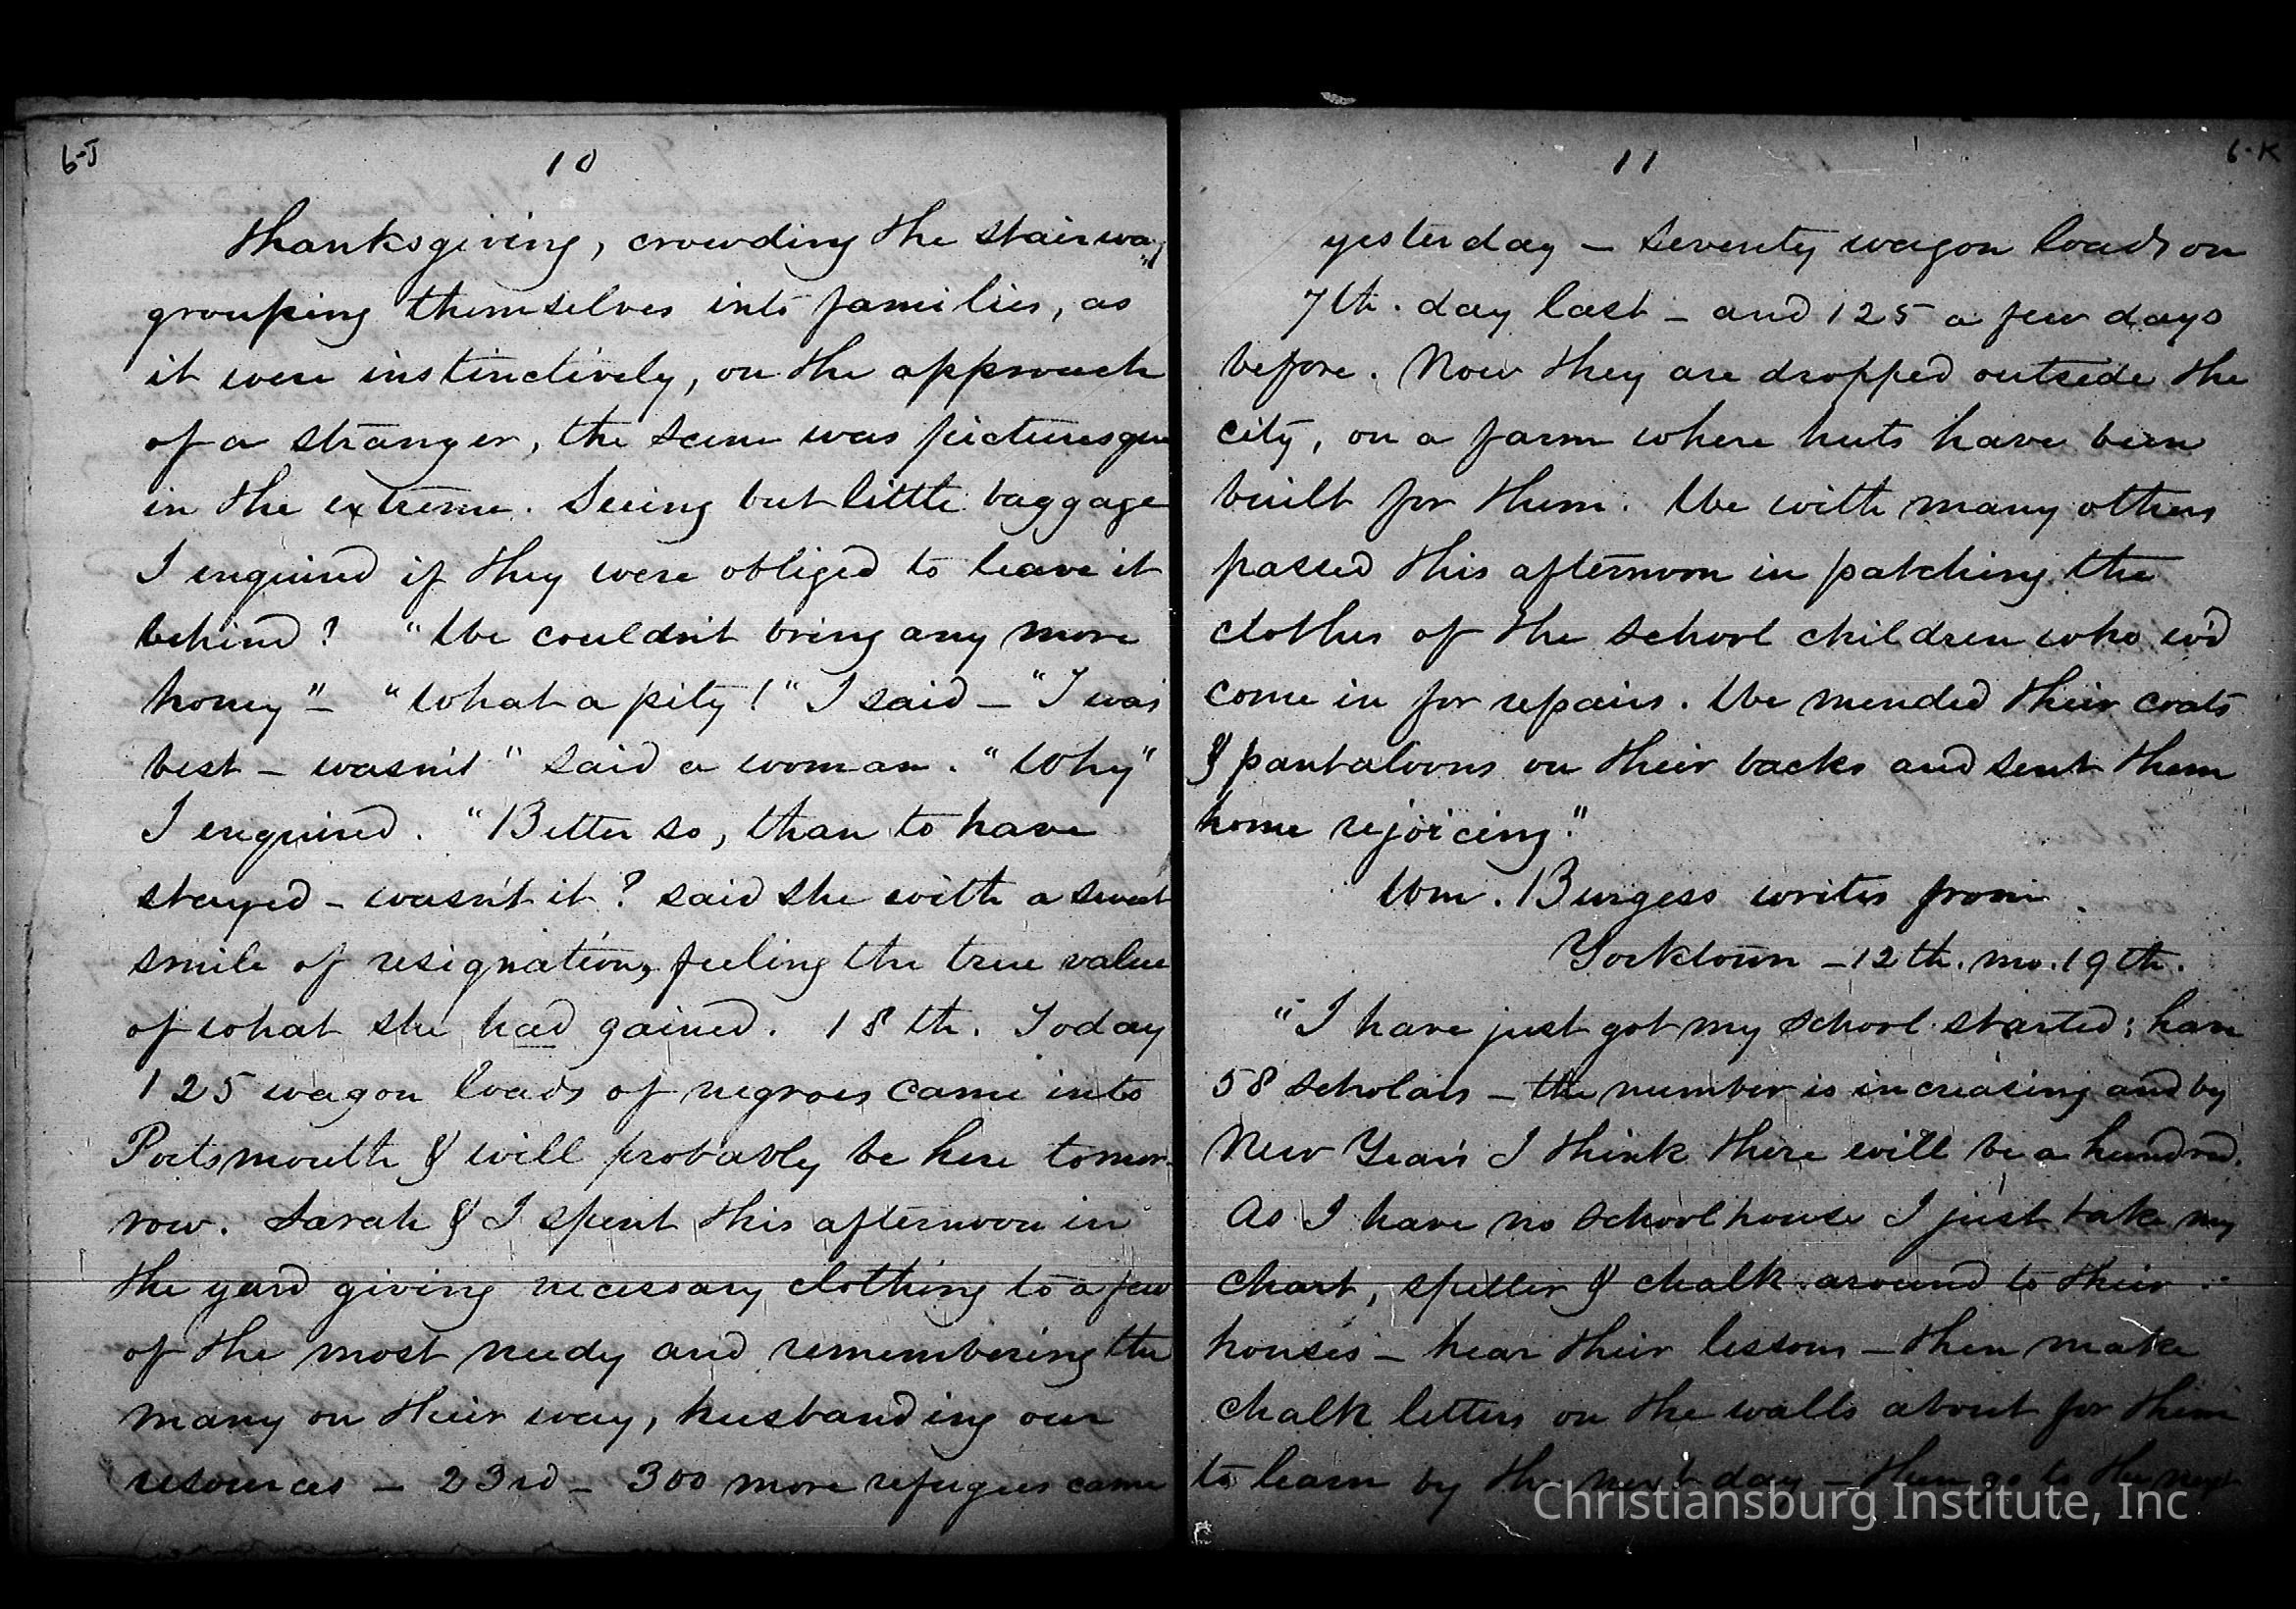 6-J
10
thanksgiving, crowding the stairway,
grouping themselves into families, as
it were instinctively, on the approach
of a stranger, the scene was picturesque
in the extreme. Seeing but little baggage
I enquired if they were obliged to leave it
behind? "We couldn't bring any more
honey" – "What a pity!" I said – "T was
best – wasn't" said a woman. "Why"
I enquired. "Better so, than to have
stayed – wasn't it? said she with a sweet
smile of resignation, feeling the true value
of what she had gained. 18th. Today
125 wagon loads of negroes came into
Portsmouth & will probably be here tomor-
row. Sarah & I spent this afternoon in
the yard giving necessary clothing to a few
of the most needy and remembering the
many on their way, husbanding our
resources – 23rd – 300 more refugees came
6-K
11
yesterday – seventy wagon loads on
7th. day last – and 125 a few days
before. Now they are dropped outside the
city, on a farm where huts have been
built for them. We with many others
passed this afternoon in patching the
clothes of the school children who w'd
come in for repairs. We mended their coats
& pantaloons on their backs and sent them
home rejoicing."
Wm. Burgess writes from
Yorktown – 12th. mo. 19th.
"I have just got my school started; have
58 scholars – the number is increasing and by
New Year's I think there will be a hundred.
As I have no schoolhouse I just take my
chart, speller & chalk around to their
houses – hear their lessons – then make
chalk letters on the walls about for them
to learn by the next day – then go to the next
Christiansburg Institute, Inc